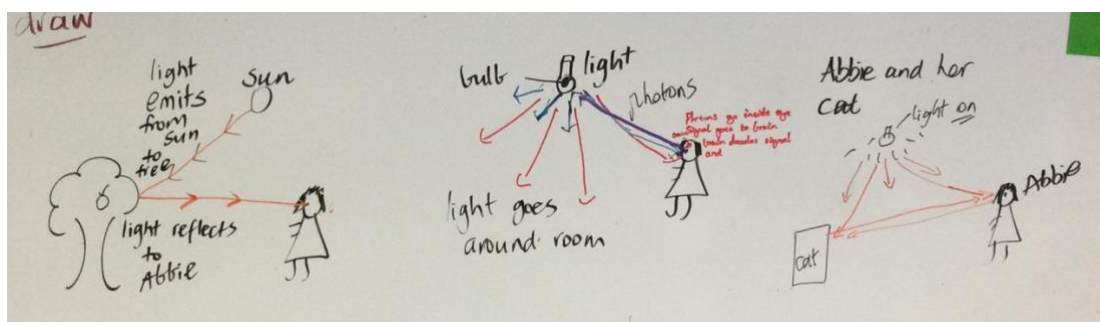 draw
light
emits
from
sun
to
tree
sun
light reflects
to
Abbie
bulb
light
photons
Photons go inside eye
signal goes to brain
brain decodes signal
and
light goes
around room
Abbie and her
cat
light on
Abbie
cat